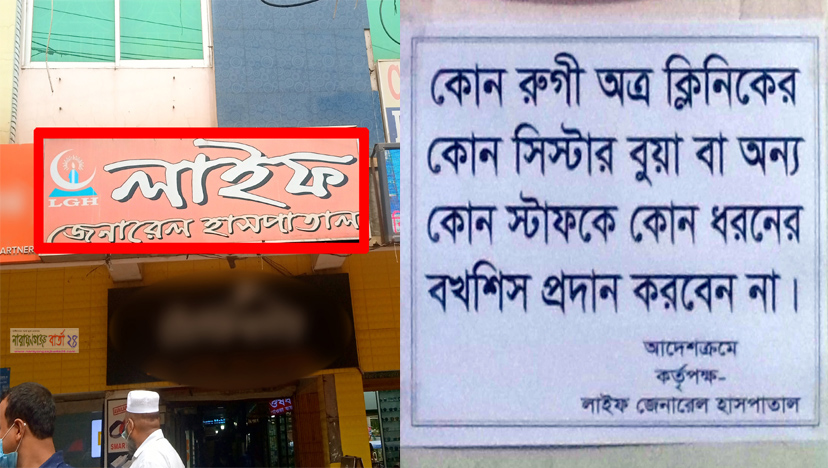 লাইফ
LGH
জেনারেল হাসপাতাল
PARTNER
নারায়ণগঞ্জ বার্তা ২৪
SMAR
কোন রুগী অত্র ক্লিনিকের
কোন সিস্টার বুয়া বা অন্য
কোন স্টাফকে কোন ধরনের
বখশিস প্রদান করবেন না।
আদেশক্রমে
কর্তৃপক্ষ-
লাইফ জেনারেল হাসপাতাল